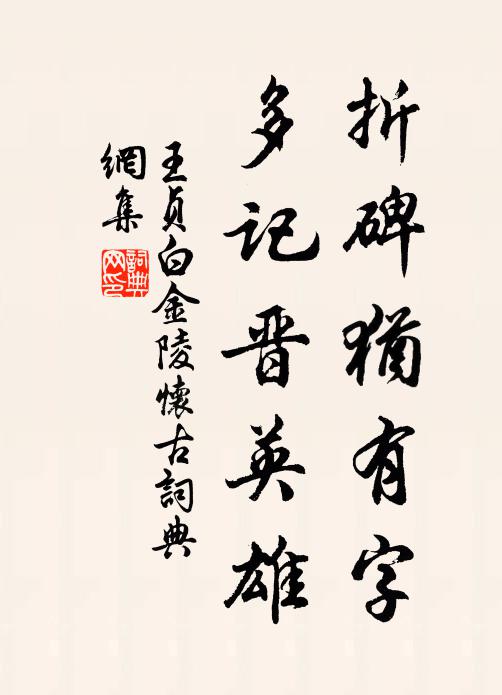 折碑猶有字
多记晋英雄
王贞白金陵懷古詞典
網集
詞典
网印